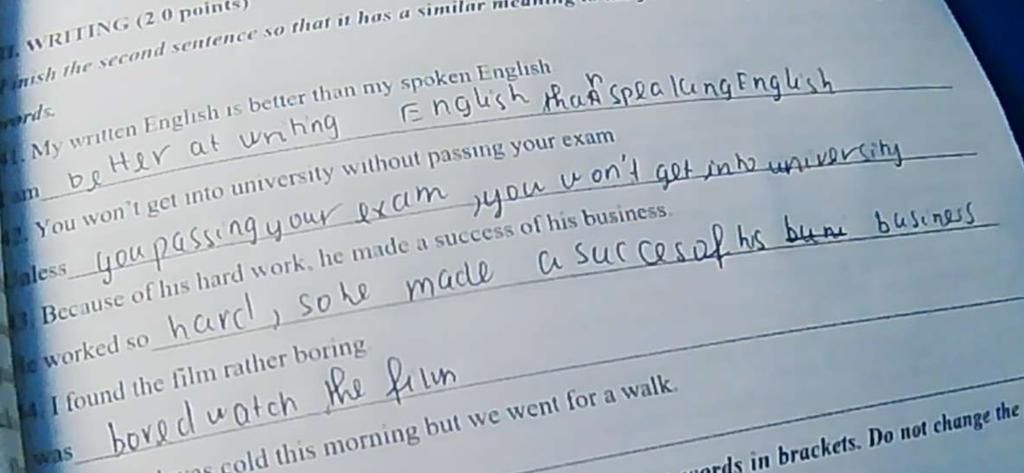 WRITING (20 points)
the second sentence so that it has a similar
My written English is better than my spoken English
am better at writing English than speaking English
You won't get into university without passing your exam
you passing your exam, you won't get into university
3. Because of his hard work, he made a success of his business.
worked so hard, so he made a succes of his business
I found the film rather boring
was bored watch the film
cold this morning but we went for a walk.
in brackets. Do not change the